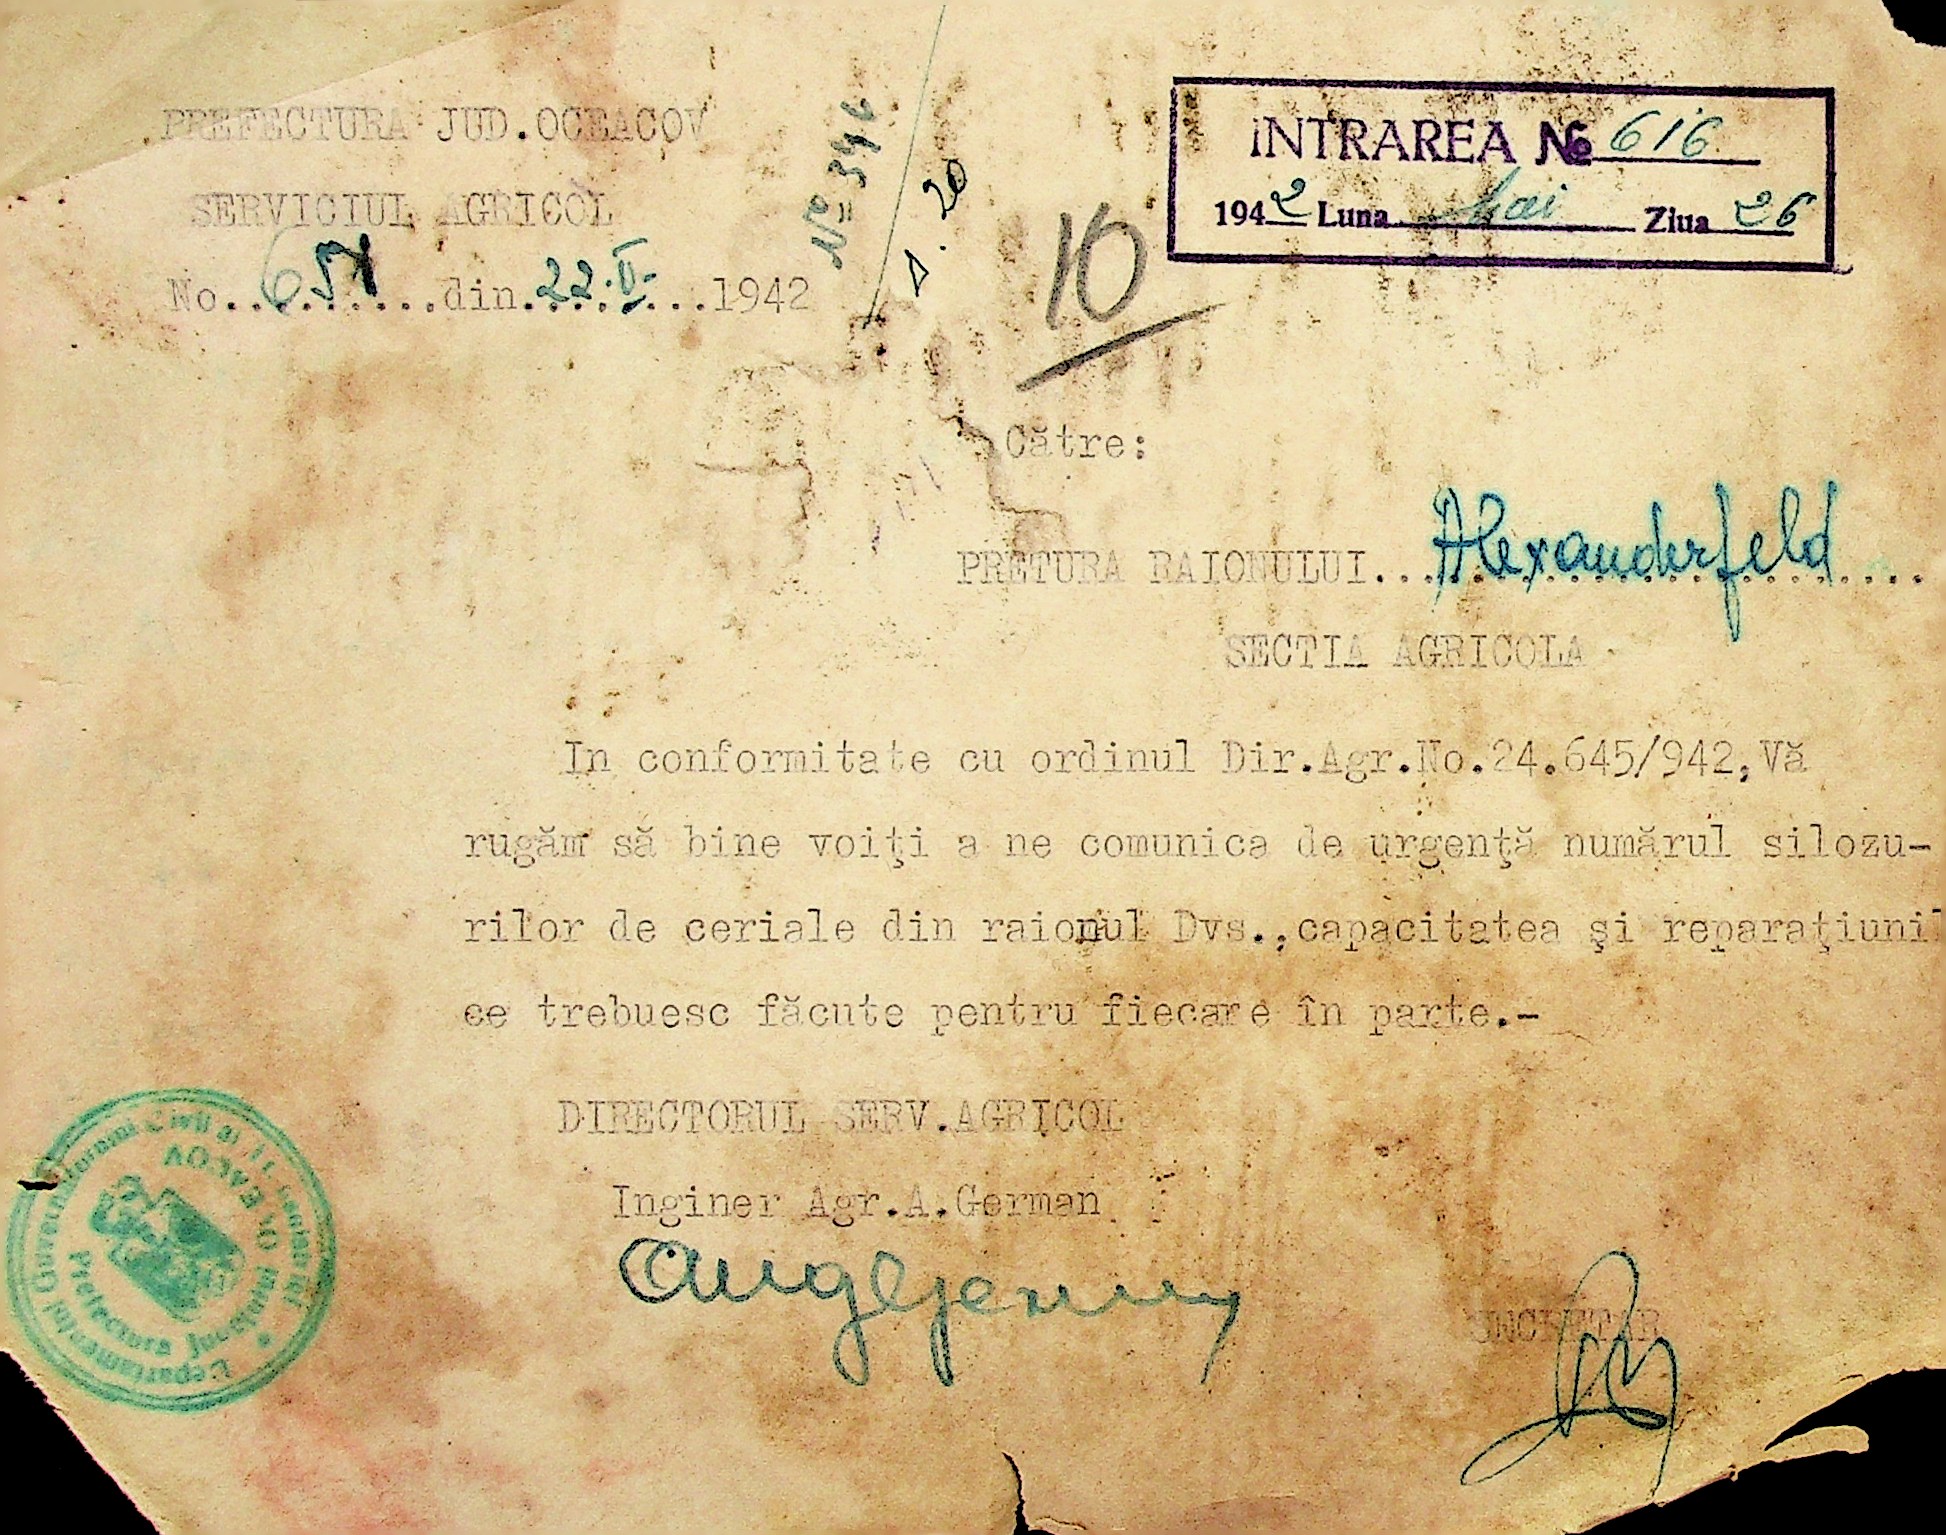 PREFECTURA JUD.OCEACOV
SERVICIUL AGRICOL
No..651.....din.22.V....1942
No 346
D. 20
10
INTRAREA No 616
1942 Luna Mai Ziua 26
Către:
PRETURA RAIONULUI...Alexanderfeld....
SECTIA AGRICOLA
In conformitate cu ordinul Dir.Agr.No.24.645/942,Vă
rugăm să bine voiţi a ne comunica de urgenţă numărul silozu-
rilor de ceriale din raionul Dvs.,capacitatea şi reparaţiunil
ce trebuesc făcute pentru fiecare în parte.-
DIRECTORUL SERV.AGRICOL
Inginer Agr.A.German
SECRETAR
Prefectura Judeţului OCEACOV